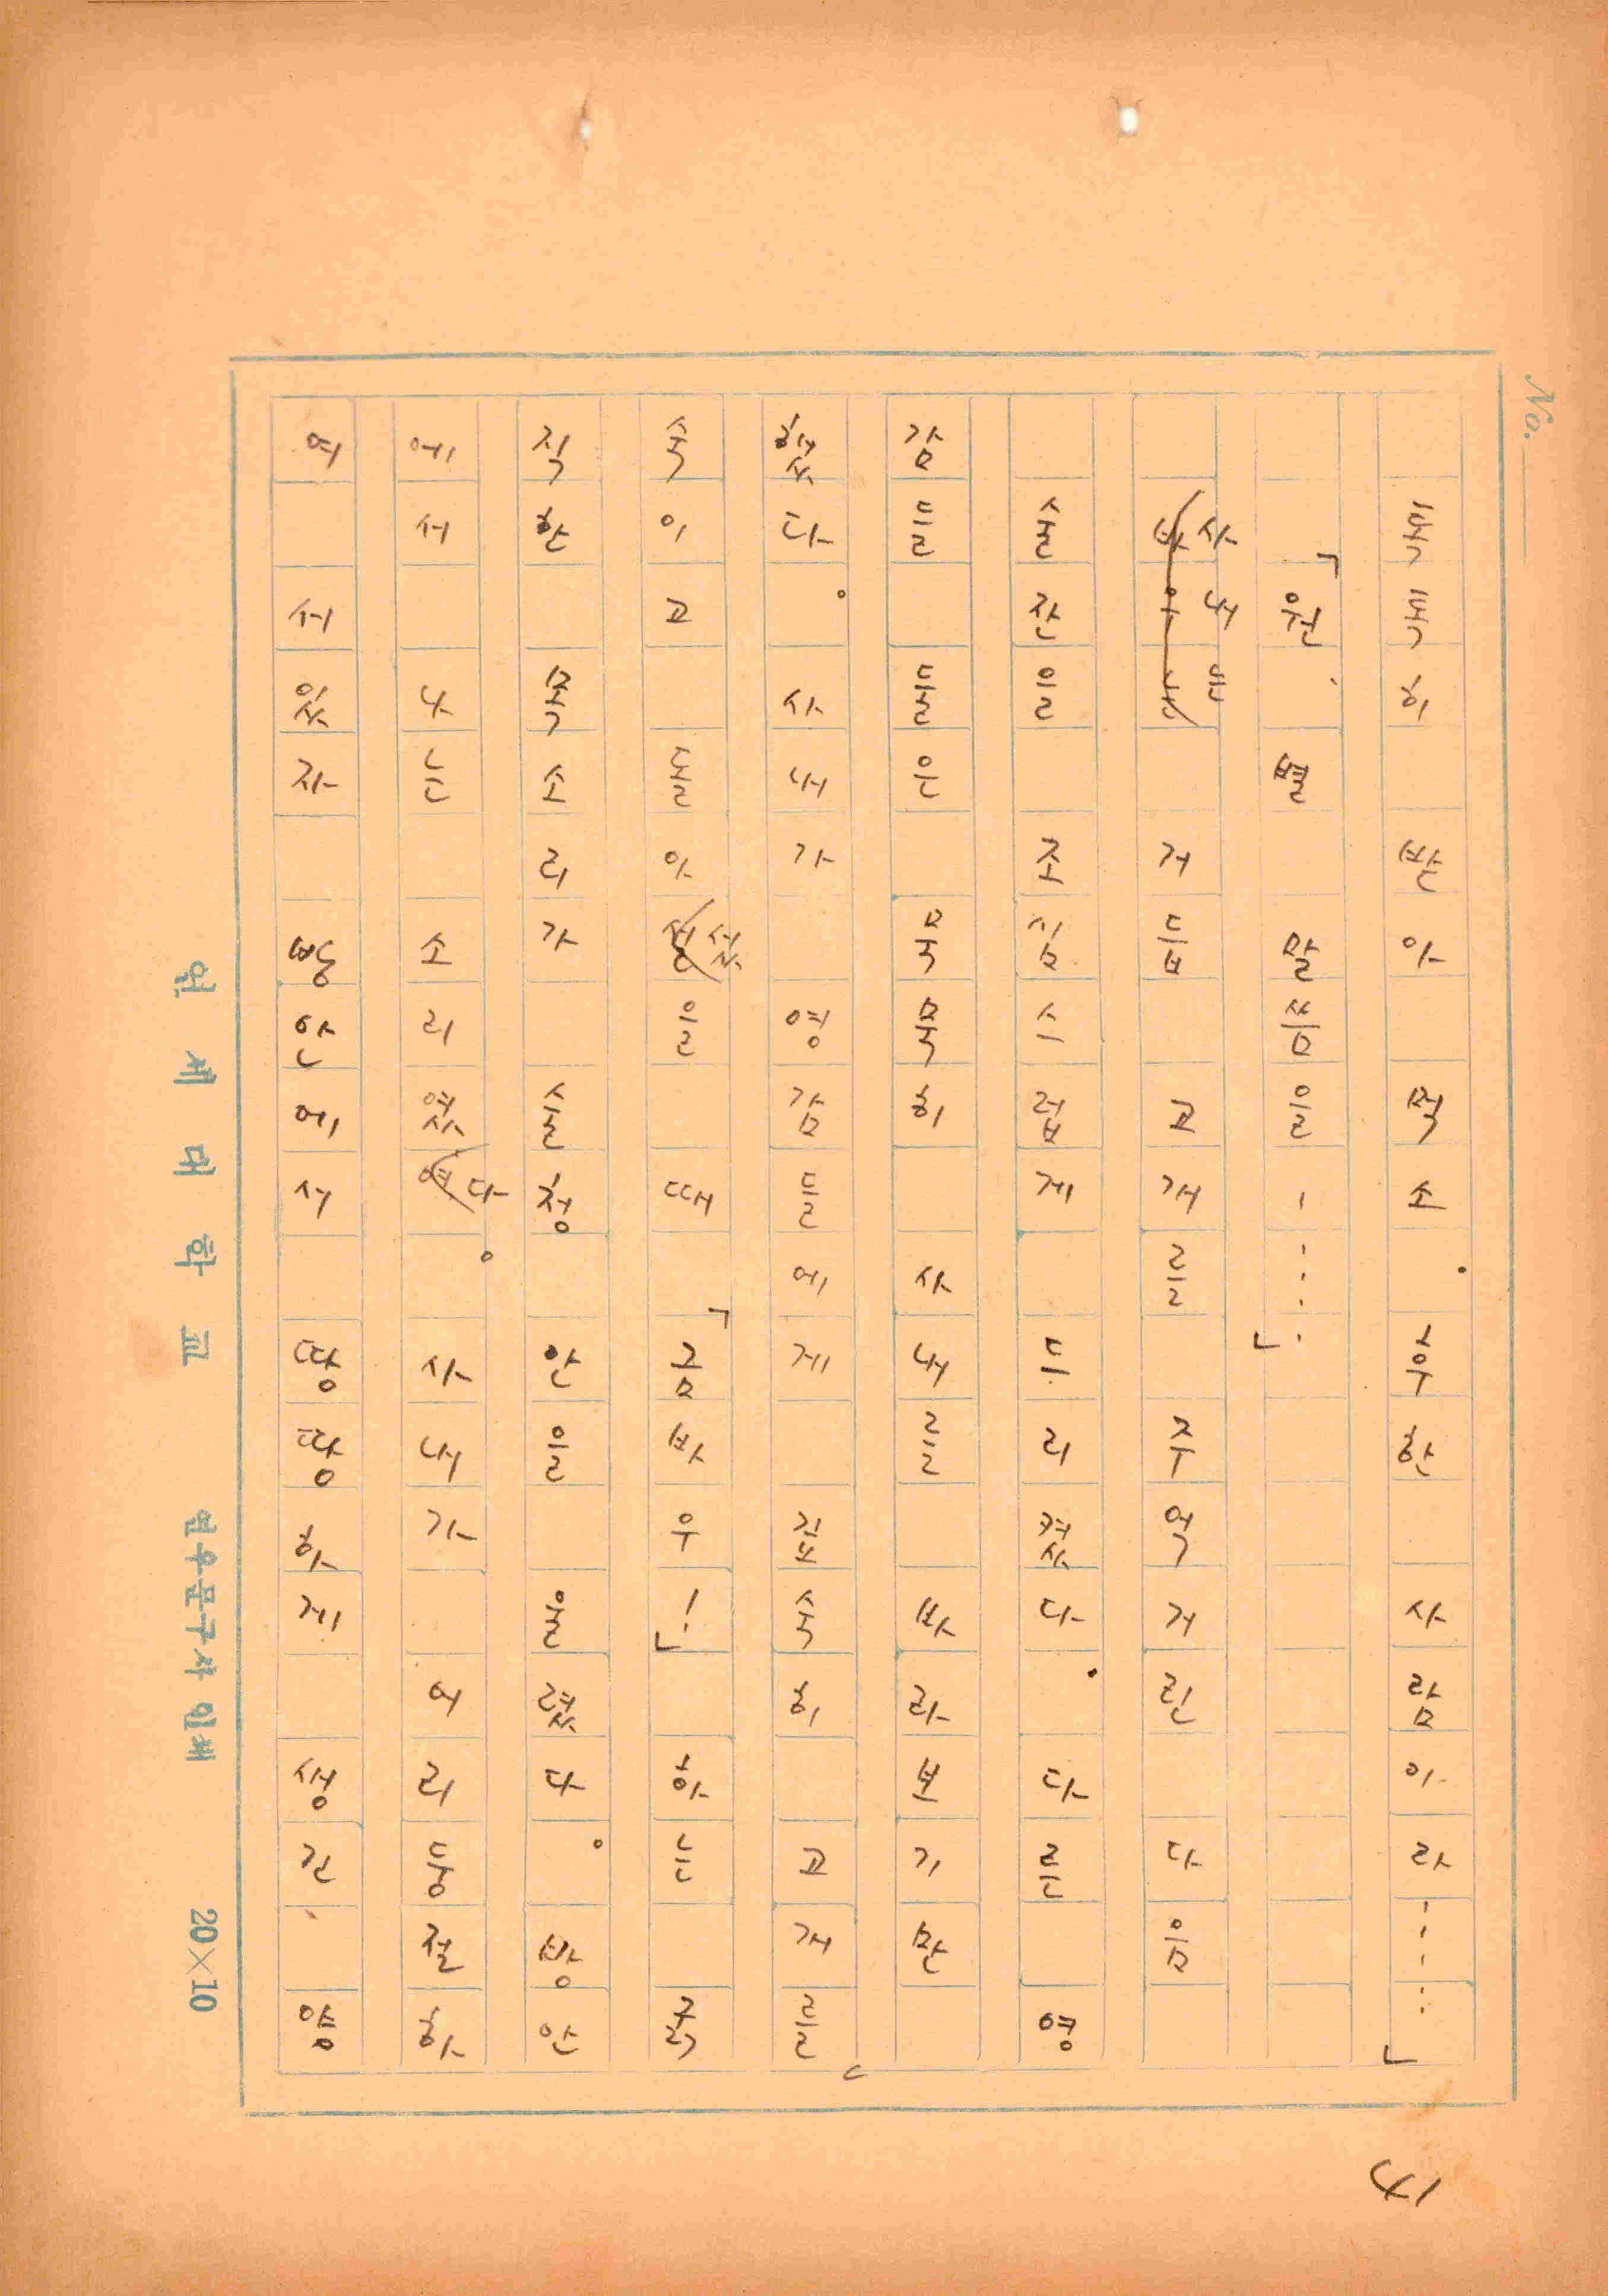 No.
뻔뻔히 받아 먹소. 우한 사람이라……」
「원, 별 말씀을ㅡ……」
사내는 거듭 고개를 주억거린 다음
술잔을 조심스럽게 드리켰다. 다른 영
감들 둘은 묵묵히 사내를 바라보기만
했다. 사내가 영감들에게 깊숙히 고개를
숙이고 돌아섰을 때 「금바우!」 하는 굵
직한 목소리가 술청 안을 울렸다. 방안
에서 나는 소리였다. 사내가 어리둥절하
여 서있자 방안에서 깡깡하게 생긴 양
연세대학교 연우문구사 인쇄 20×10
41